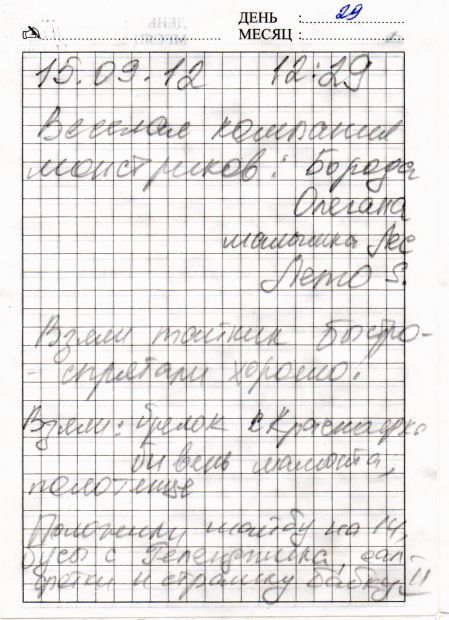 ДЕНЬ : 29
МЕСЯЦ :
15.09.12 12:29
Веселая компания
монстриков: Борода
Олегана
малышка Лес
Лето S.
Взяли тайник быстро-
- спрятали хорошо!
Взяли: брелок с Краснодара
бивень мамонта,
полотенце
Положили шайбу на 14,
бусы с Геленджика, сал-
фетки и страшну бабку!!